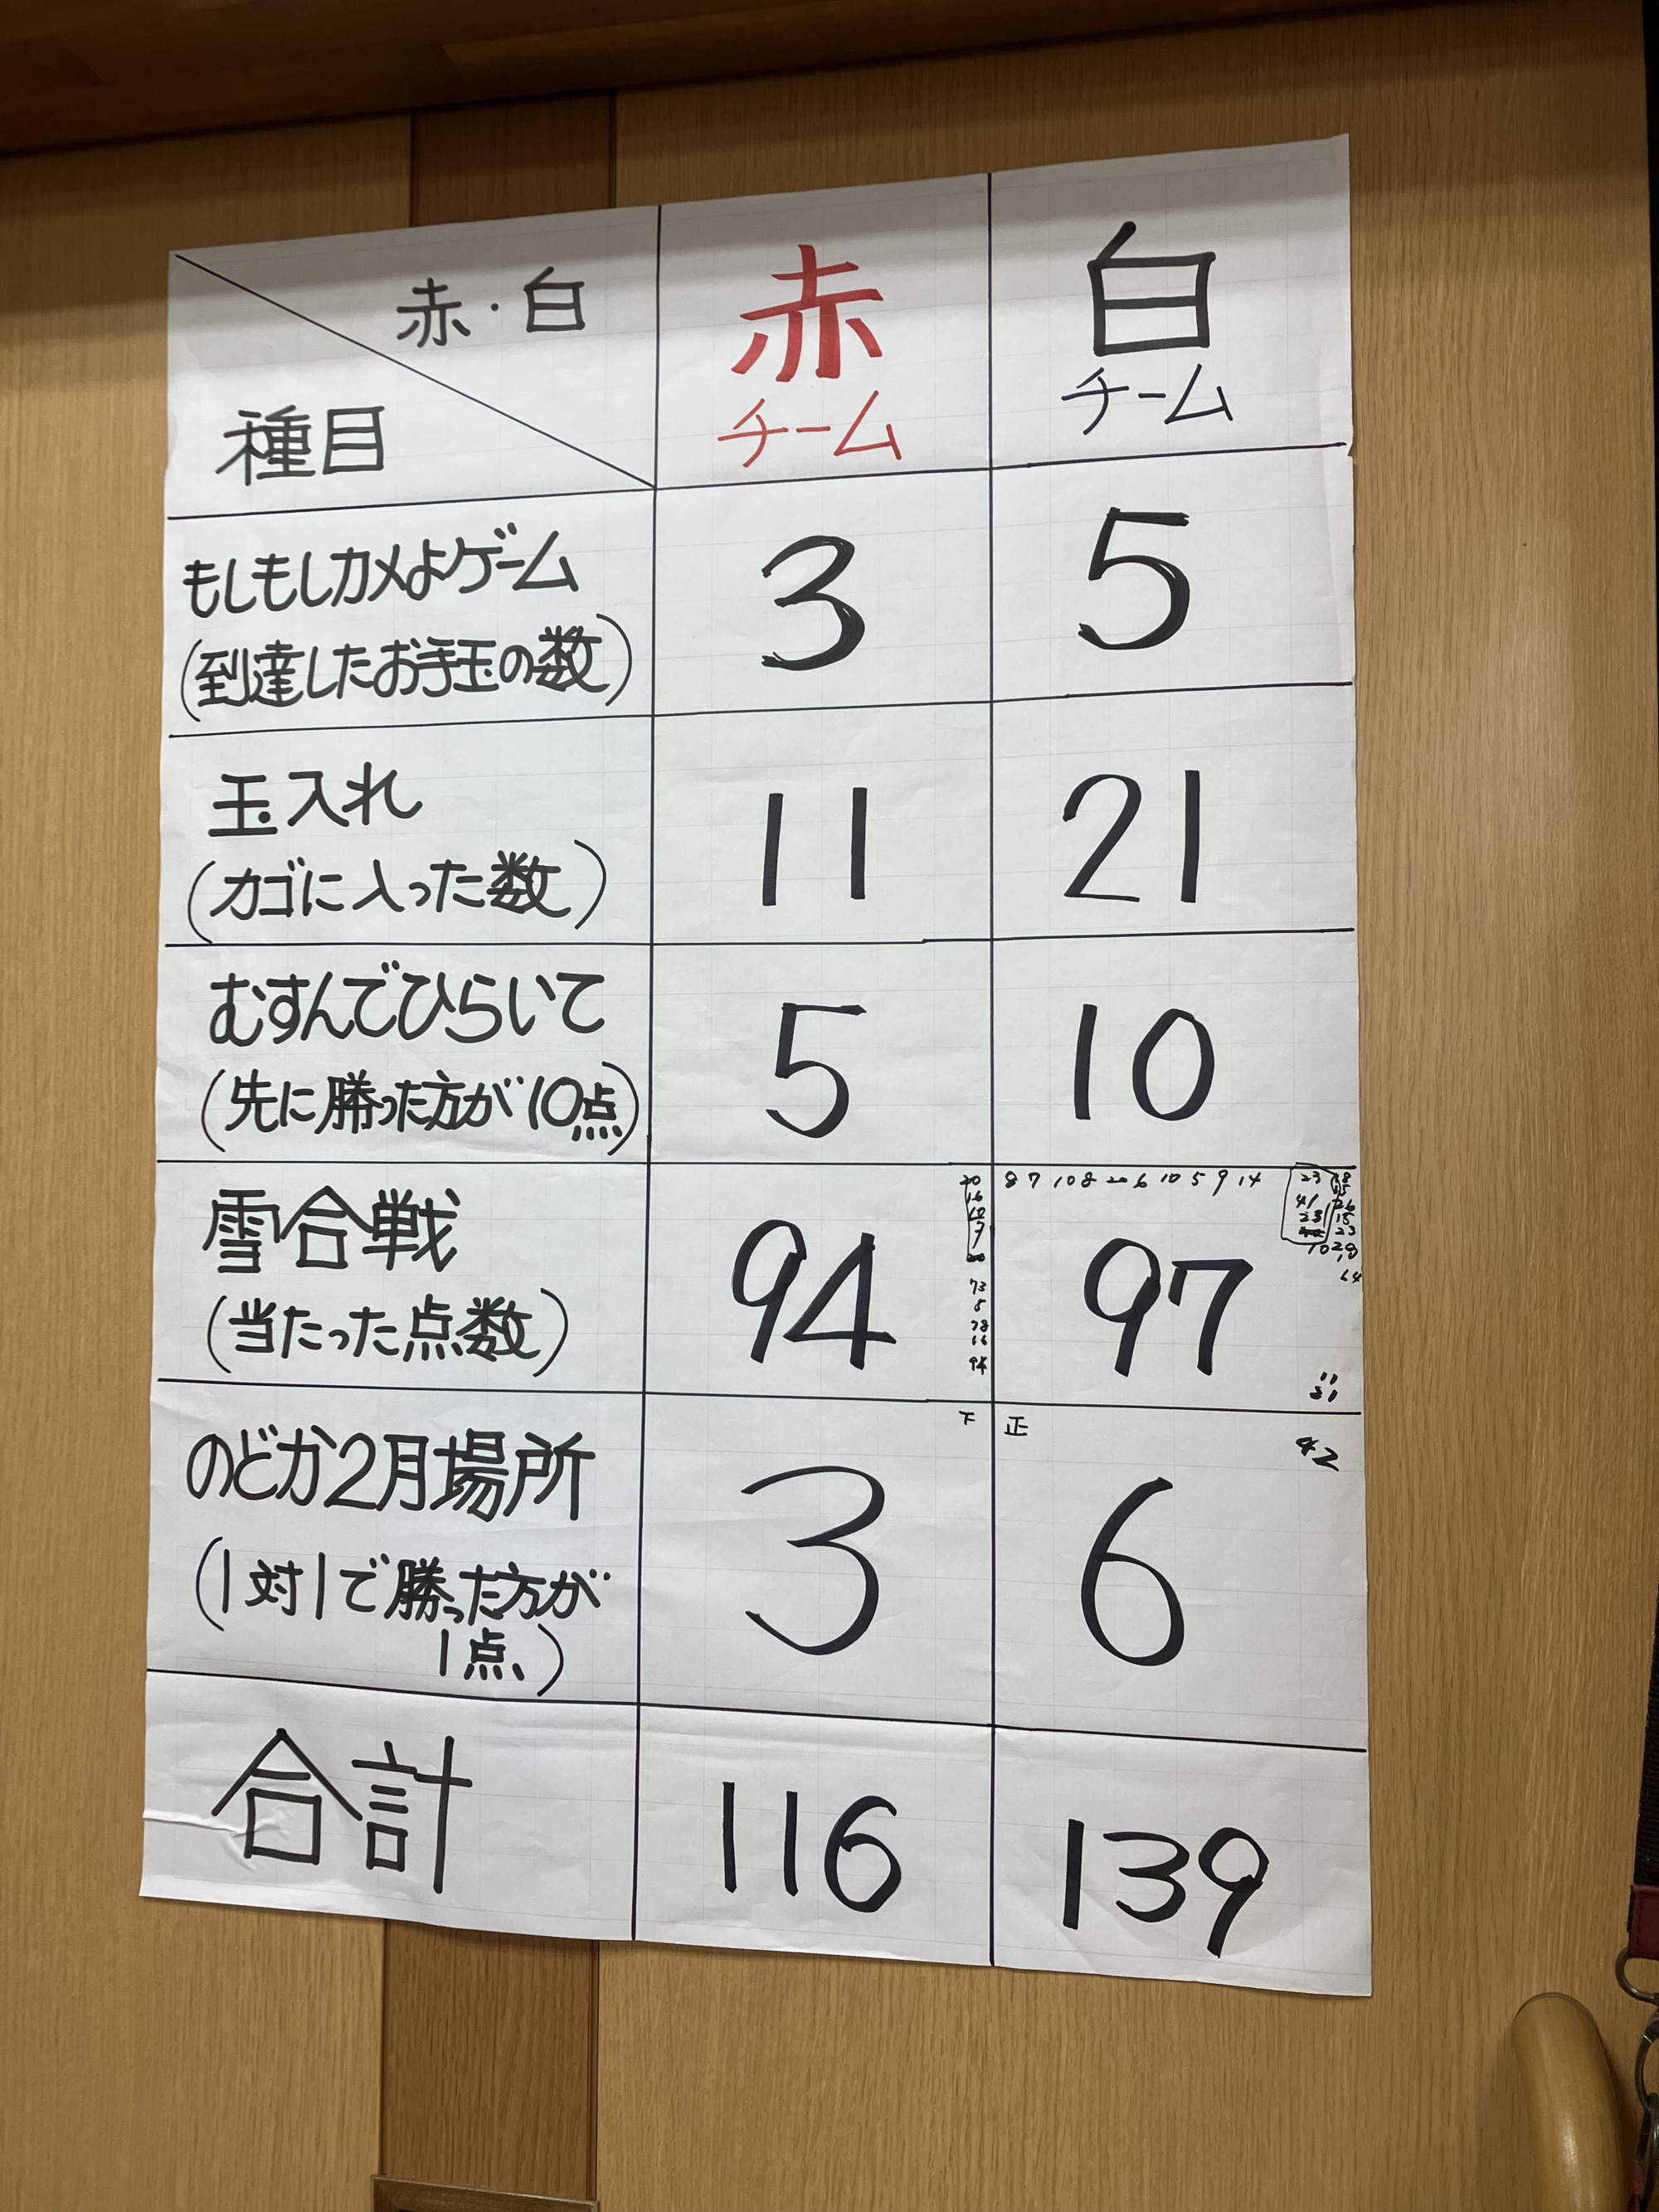 赤・白
種目
赤
チーム
白
チーム
もしもしカメよゲーム
(到達したお手玉の数)
3
5
玉入れ
(カゴに入った数)
11
21
むすんでひらいて
(先に勝った方が10点)
5
10
雪合戦
(当たった点数)
94
97
8 7 10 8 20 6 10 5 9 14
のどか2月場所
(1対1で勝った方が
1点)
下
3
正
42
6
合計
116
139